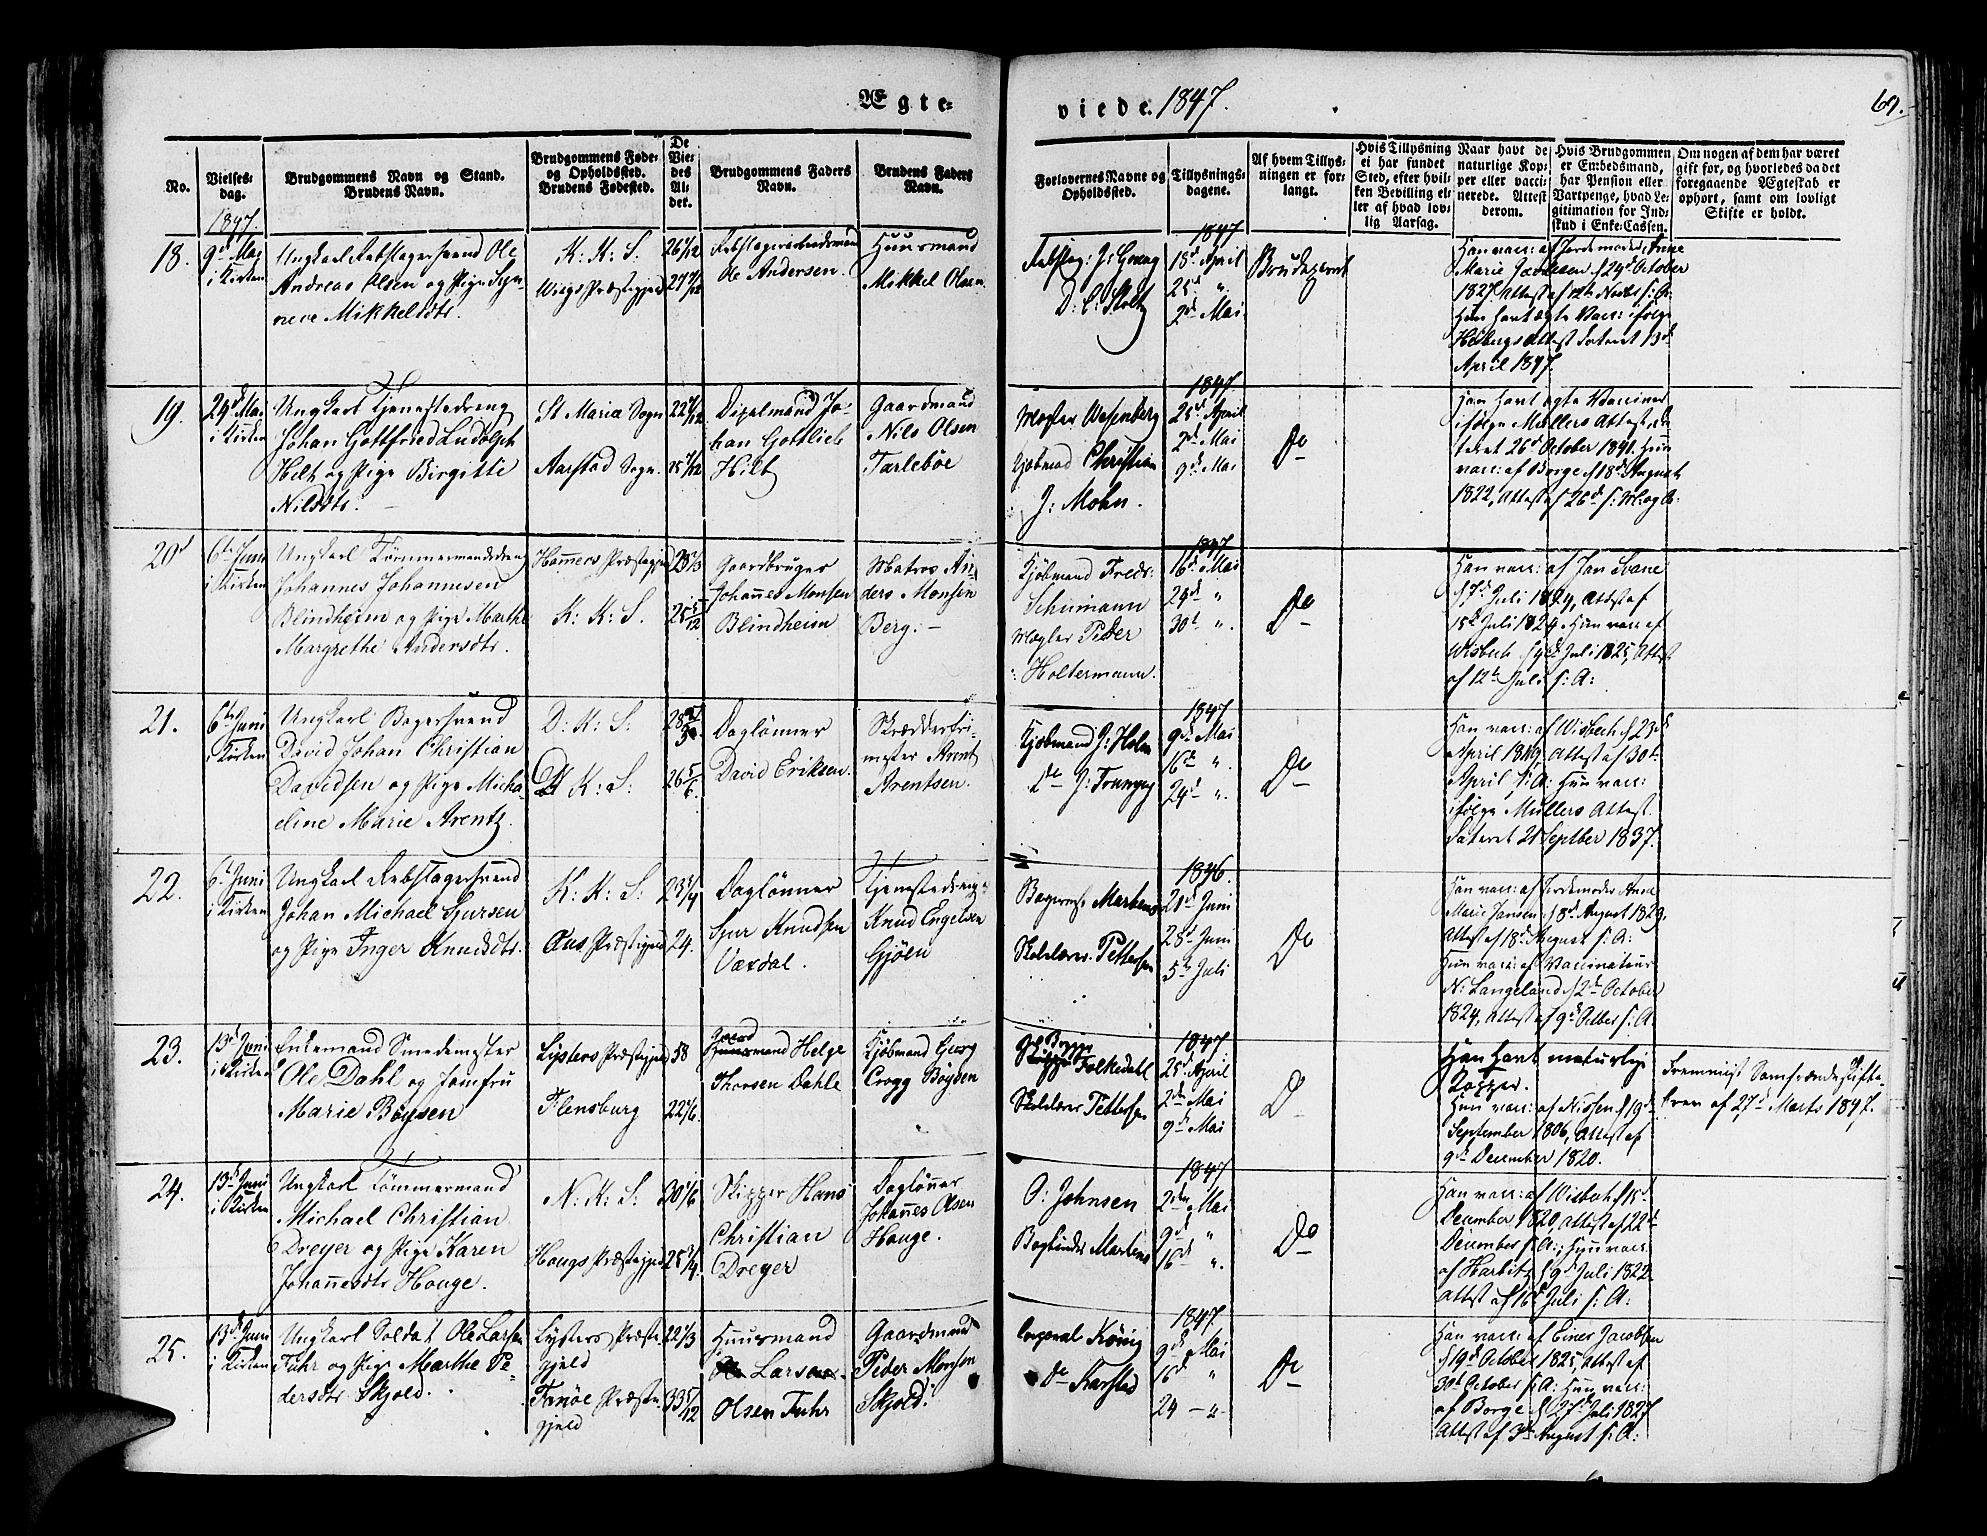 Ægte-
viede. 1847.
69.
No.
Vielses-
dag.
Brudgommens Navn og Stand.
Brudens Navn.
Brudgommens Føde-
og Opholdssted.
Brudens Fødested.
De
Vie-
des
Al-
der.
Brudgommens Faders
Navn.
Brudens Faders
Navn.
Forlovernes Navne og
Opholdssted.
Tillysnings-
dagene.
Af hvem Tillys-
ningen er for-
langt.
Hvis Tillysning
ei har fundet
Sted, efter hvil-
ken Bevilling el-
ler af hvad lov-
lig Aarsag.
Naar havt de
naturlige Kop-
per eller vacci-
nerede. Attest
derom.
Hvis Brudgommen
er Embedsmand,
har Pension eller
Vartpenge, hvad Le-
gitimation for Ind-
skud i Enke-Cassen.
Om nogen af dem har været
gift før, og hvorledes da det
foregaaende Ægteskab er
ophørt, samt om lovligt
Skifte er holdt.
1847.
18.
9de Mai
i Kirken
Ungkarl Rebslagersvend Ole
Andreas Olsen og Pige Syn-
neve Mikkelsdtr.
K: K: S.
Wiigs Præstegjeld
Rebslagerarbeidsmand
Ole Andersen.
Huusmand
Mikkel Olsen
Rebslag: J: Grung
D: C: Stoltz
1847
18d April
25d "
2d Mai
Brudeparret
Han vacc: af Jordemoder Anne
Marie Jacobsen d 29d October
1827. Attest af 12te Novbr s: A:
Hun havt ægte Vacc: ifølge
Heibergs Attest dateret 13d
April 1847.
19.
24d Mai
i Kirken
Ungkarl Tjenestedreng
Johan Gottfried Ludolph
Hilt og Pige Birgitte
Nilsdtr. –
St Mariæ Sogn
Aarstad Sogn.
Johan Gottlieb
Hilt
Gaardmand
Nils Olsen
Tarlebøe
Mægler Wesenberg
Kjøbmd Christian
J: Mohn.
1847.
25d April
2d Mai
9d Mai
Do
Han havt ægte Vacciner
ifølge Müllers Attest da-
teret 26d October 1841. Hun
vacc: af Borge d 18d August
1822, Attest af 26d s: M: og A:
20d
6te Juni
i Kirken
Ungkarl Tømmermandsdreng
Johannes Johannesen
Blindheim og Pige Marthe
Margrethe Andersdtr.
K: K: S.
Gaardbruger
Johannes Monsen
Blindheim
Matros An-
ders Monsen
Berg. –
Kjøbmand Fredr:
Schumann
Mægler Peder
Holtermann.
1847.
16d Mai
24d "
30d "
Do
Han vacc: af Jan Svane
d 7d Juli 1824, Attest af
15d Juli 1824. Hun vacc: af
Wisbech d 9d Juli 1825, Attest
af 12te Juli s: A:
21.
6te Juni
i Kirken
Ungkarl Bagersvend
David Johan Christian
Davidsen og Pige Micha-
eline Marie Arentz.
D: K: S.
K: S:
Daglønner
David Eriksen.
Skrædder-
mester Arent
Arentsen.
Kjøbmand J: Holm
Do J: Trumpy
1847
9d Mai
16de "
24d "
Do
Han vacc: af Wisbech d 23d
April 1819, Attest af 30te
April s: A: Hun vacc:
ifølge Müllers Attest
dateret 21 Septber 1837.
22.
6te Juni
i Kirken
Ungkarl Rebslagersvend
Johan Michael Sjursen
og Pige Inger Knudsdtr.
K: K: S:
Ous Præstegjeld
23 1/4
24.
Daglønner
Sjur Knudsen
Værdal.
Tjenestedreng
Knud Engelsen
Gjøen
Bagermr Martens
Skolelærer Pettersen
1846.
21d Juni
28d Juni
5te Juli
Do
Han vacc: af Jordemoder Anne
Marie Jansen d 8d August 1829.
Attest af 18d August s: A:
Hun vacc: af Vaccinateur
N: Langeland d 2d October
1824, Attest af 9d Octbr s: A.
23.
13d Juni
i Kirken
Enkemand Smedemester
Ole Dahl og Jomfru
Marie Bøysen
Lysters Præstegjeld
Flensburg
58
22 1/6.
Gaard
Huusmand Helge
Thorsen Dahle
Kjøbmand Georg
Crogg Bøysen
Folkedahl
Skolelærer Pettersen
1847
25d April
2den Mai
9d Mai
D
Han havt naturlige
Kopper.
Hun vacc: af Nissen d 19d
September 1806, Attest af
9d December 1820.
Fremviist Samfrændeskifte-
brev af 27d Marts 1847.
24.
13d Juni
i Kirken
Ungkarl Tømmermand
Michael Christian
Dreyer og Pige Karen
Johannesdtr Houge.
N: K: S:
Hougs Præstegjeld
30 1/6
25 1/4
Skipper Hans
Christian
Dreyer
Daglønner
Johannes Olsen
Houge.
O: Johnsen
Bogbinder Martens
1847
2den Mai
9d "
16d "
Do
Han vacc: af Wisbech d 15d
December 1820, Attest af 22de
December s: A:, Hun vacc:
af Harbitz d 9d Juli 1822.
Attest af 16d Juli s: A:
25.
13d Juni
i Kirken
Ungkarl Soldat Ole Larsen
Fuhr og Pige Marthe Pe-
dersdtr Skjold.
Lysters Præste-
gjeld
Finøe Præste-
gjeld
22 1/3
33 5/12
Huusmand
Lars
Olsen Fuhr
Gaardmand
Peder Monsen
Skjold.
Corporal König
Do Karstad
1847.
9d Mai
16d "
24 – "
Do
Han vacc: af Einer Jacobsen
d 19d October 1825, Attest af
30d October s: A: Hun vacc:
af Borge d 27d Juli 1827.
Attest af 3d August s: A: